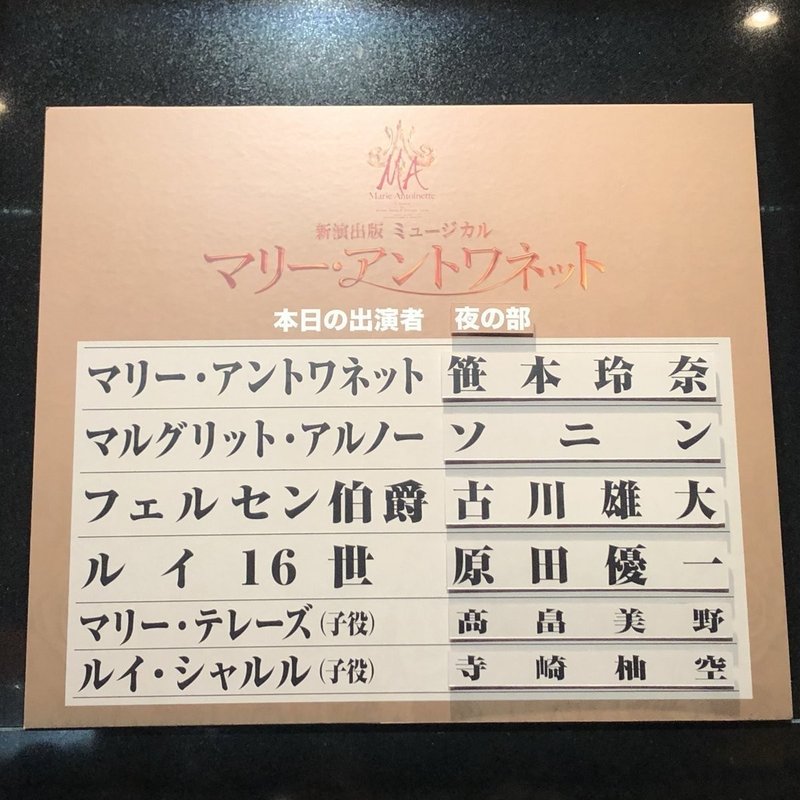 MA
Marie Antoinette
新演出版 ミュージカル
マリー・アントワネット
本日の出演者 夜の部
マリー・アントワネット 笹本玲奈
マルグリット・アルノー ソニン
フェルセン伯爵 古川雄大
ルイ16世 原田優一
マリー・テレーズ(子役) 髙畠美野
ルイ・シャルル(子役) 寺崎柚空